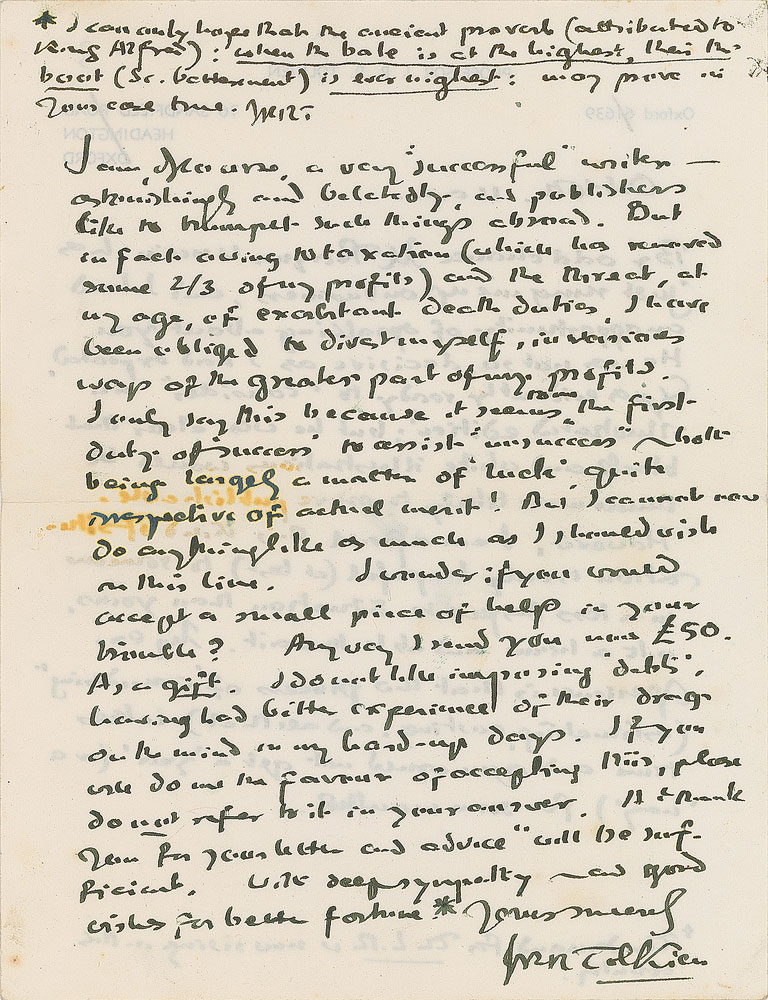 * I can only hope that the ancient proverb (attributed to
King Alfred): when the bale is at the highest, then the
boot (sc. betterment) is ever nighest: may prove in
your case true. JRRT.
I am, of course, a very "successful" writer —
astonishingly and belatedly, and publishers
like to trumpet such things abroad. But
in fact owing to taxation (which has removed
some 2/3 of my profits) and the threat, at
my age, of exorbitant death duties, I have
been obliged to divest myself, in various
ways of the greater part of my profits.
I only say this because it seems to me the first
duty of 'success' to assist 'unsuccess' – both
being largely a matter of 'luck', quite
irrespective of actual merit! But I cannot now
do anything like as much as I should wish
in this line. I wonder if you would
accept a small piece of help in your
trouble? Anyway I send you now £50.
As a gift. I do not like imposing 'debts',
having had bitter experience of their drag
on the mind in my hard-up days. If you
will do me the favour of accepting this, please
do not refer to it in your answer. A "thank
you for your letter and advice" will be suf-
ficient. With deep sympathy – and good
wishes for better fortune * Yours sincerely
JRR Tolkien